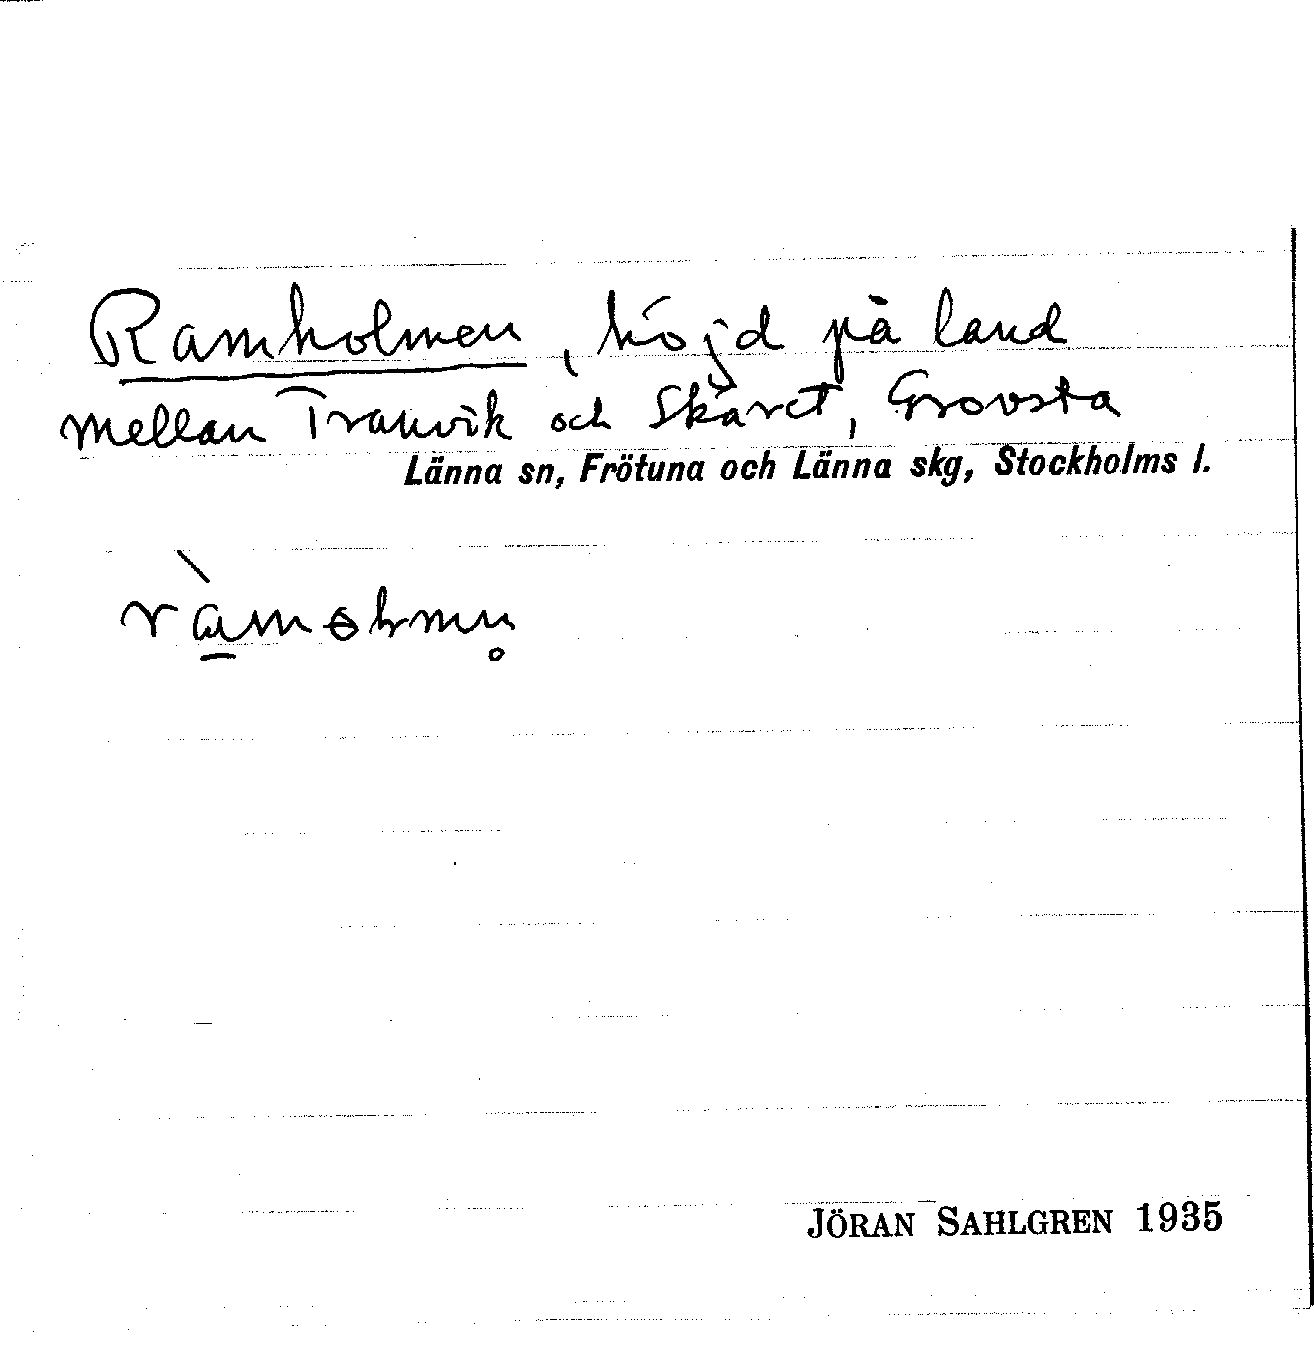 Ramholmen, höjd på land
mellan Tranvik och Skäret, Grovsta
Länna sn, Frötuna och Länna skg, Stockholms l.
JÖRAN SAHLGREN 1935